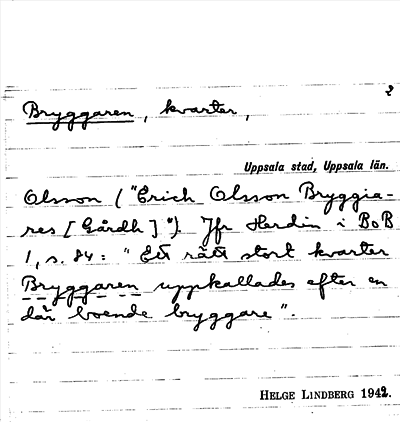 2
Bryggaren, kvarter,
Uppsala stad, Uppsala län.
Olsson ("Erich Olsson Bryggia-
res [Gårdh]"). Jfr Hardin i BoB
1, s. 84: "Ett rätt stort kvarter
Bryggaren uppkallades efter en
där boende bryggare".
HELGE LINDBERG 1942.